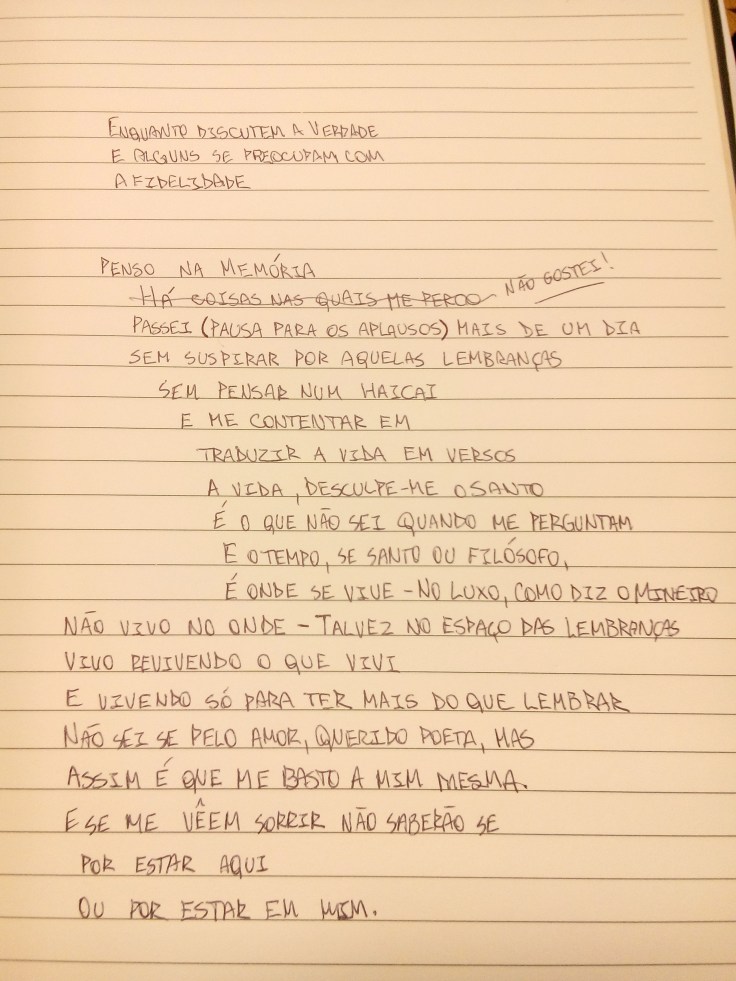 ENQUANTO DISCUTEM A VERDADE
E ALGUNS SE PREOCUPAM COM
A FIDELIDADE
PENSO NA MEMÓRIA
HÁ COISAS NAS QUAIS ME PERCO NÃO GOSTEI!
PASSEI (PAUSA PARA OS APLAUSOS) MAIS DE UM DIA
SEM SUSPIRAR POR AQUELAS LEMBRANÇAS
SEM PENSAR NUM HAICAI
E ME CONTENTAR EM
TRADUZIR A VIDA EM VERSOS
A VIDA, DESCULPE-ME O SANTO
É O QUE NÃO SEI QUANDO ME PERGUNTAM
E O TEMPO, SE SANTO OU FILÓSOFO,
É ONDE SE VIVE - NO LUXO, COMO DIZ O MINEIRO
NÃO VIVO NO ONDE - TALVEZ NO ESPAÇO DAS LEMBRANÇAS
VIVO REVIVENDO O QUE VIVI
E VIVENDO SÓ PARA TER MAIS DO QUE LEMBRAR
NÃO SEI SE PELO AMOR, QUERIDO POETA, MAS
ASSIM É QUE ME BASTO A MIM MESMA.
E SE ME VÊEM SORRIR NÃO SABERÃO SE
POR ESTAR AQUI
OU POR ESTAR EM MIM.